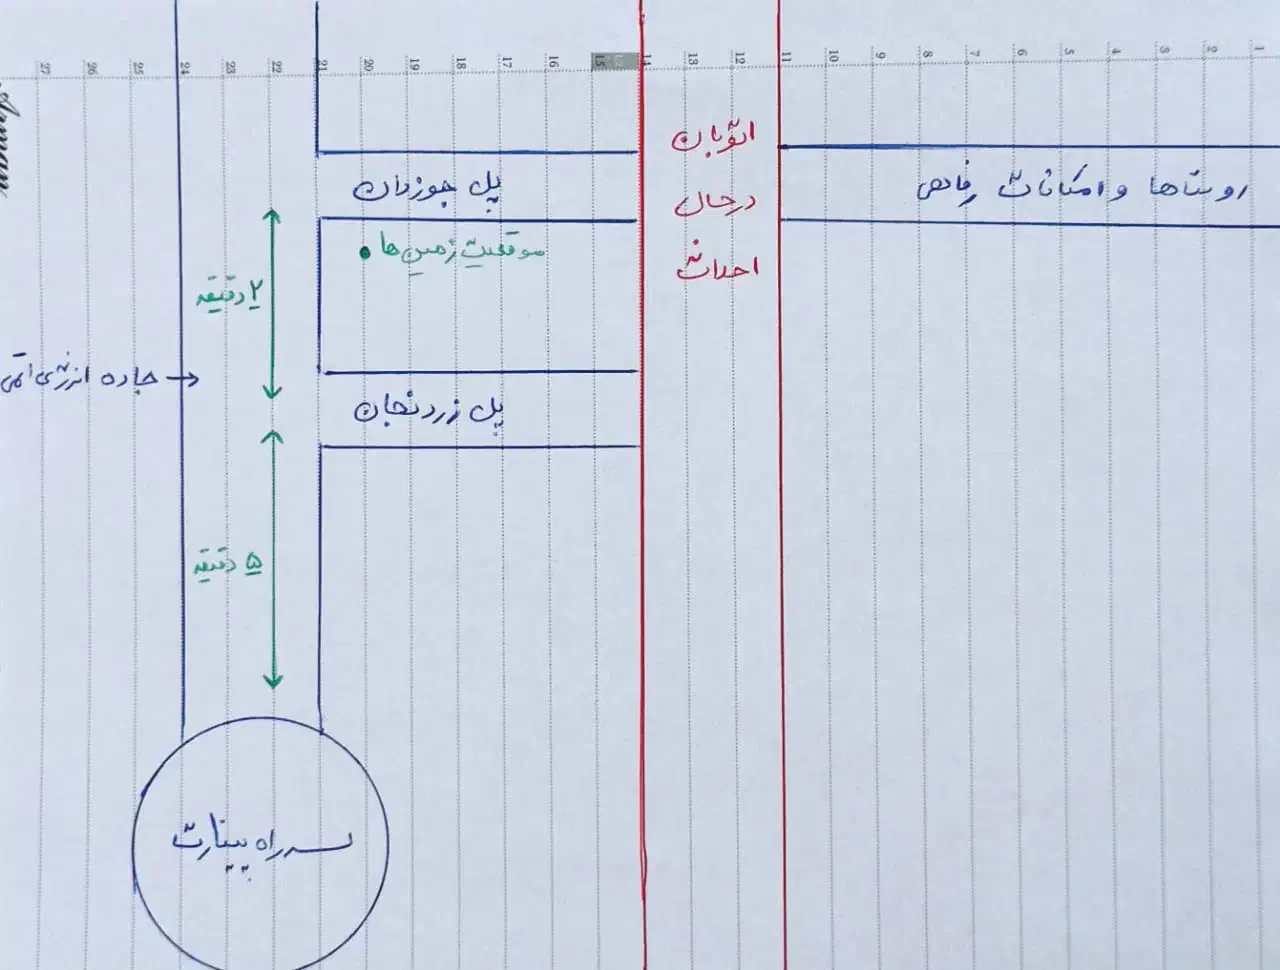 1 2 3 4 5 6 7 8 9 10 11 12 13 14 15 16 17 18 19 20 21 22 23 24 25 26 27
اتوبان
درحال
احداث
روستاها و امکانات رفاهی
پل جوزدان
موقعیت زمین ها
۲ دقیقه
جاده انرژی اتمی
پل زردنجان
۵ دقیقه
سه راه پینارت